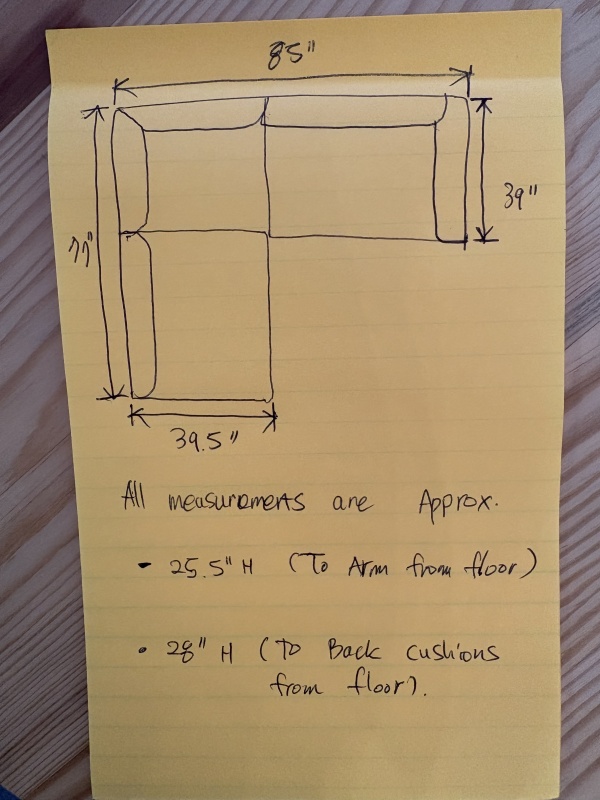 85"
39"
77"
39.5"
All measurements are Approx.
- 25.5" H (To Arm from floor)
• 28" H (To Back cushions
from floor).